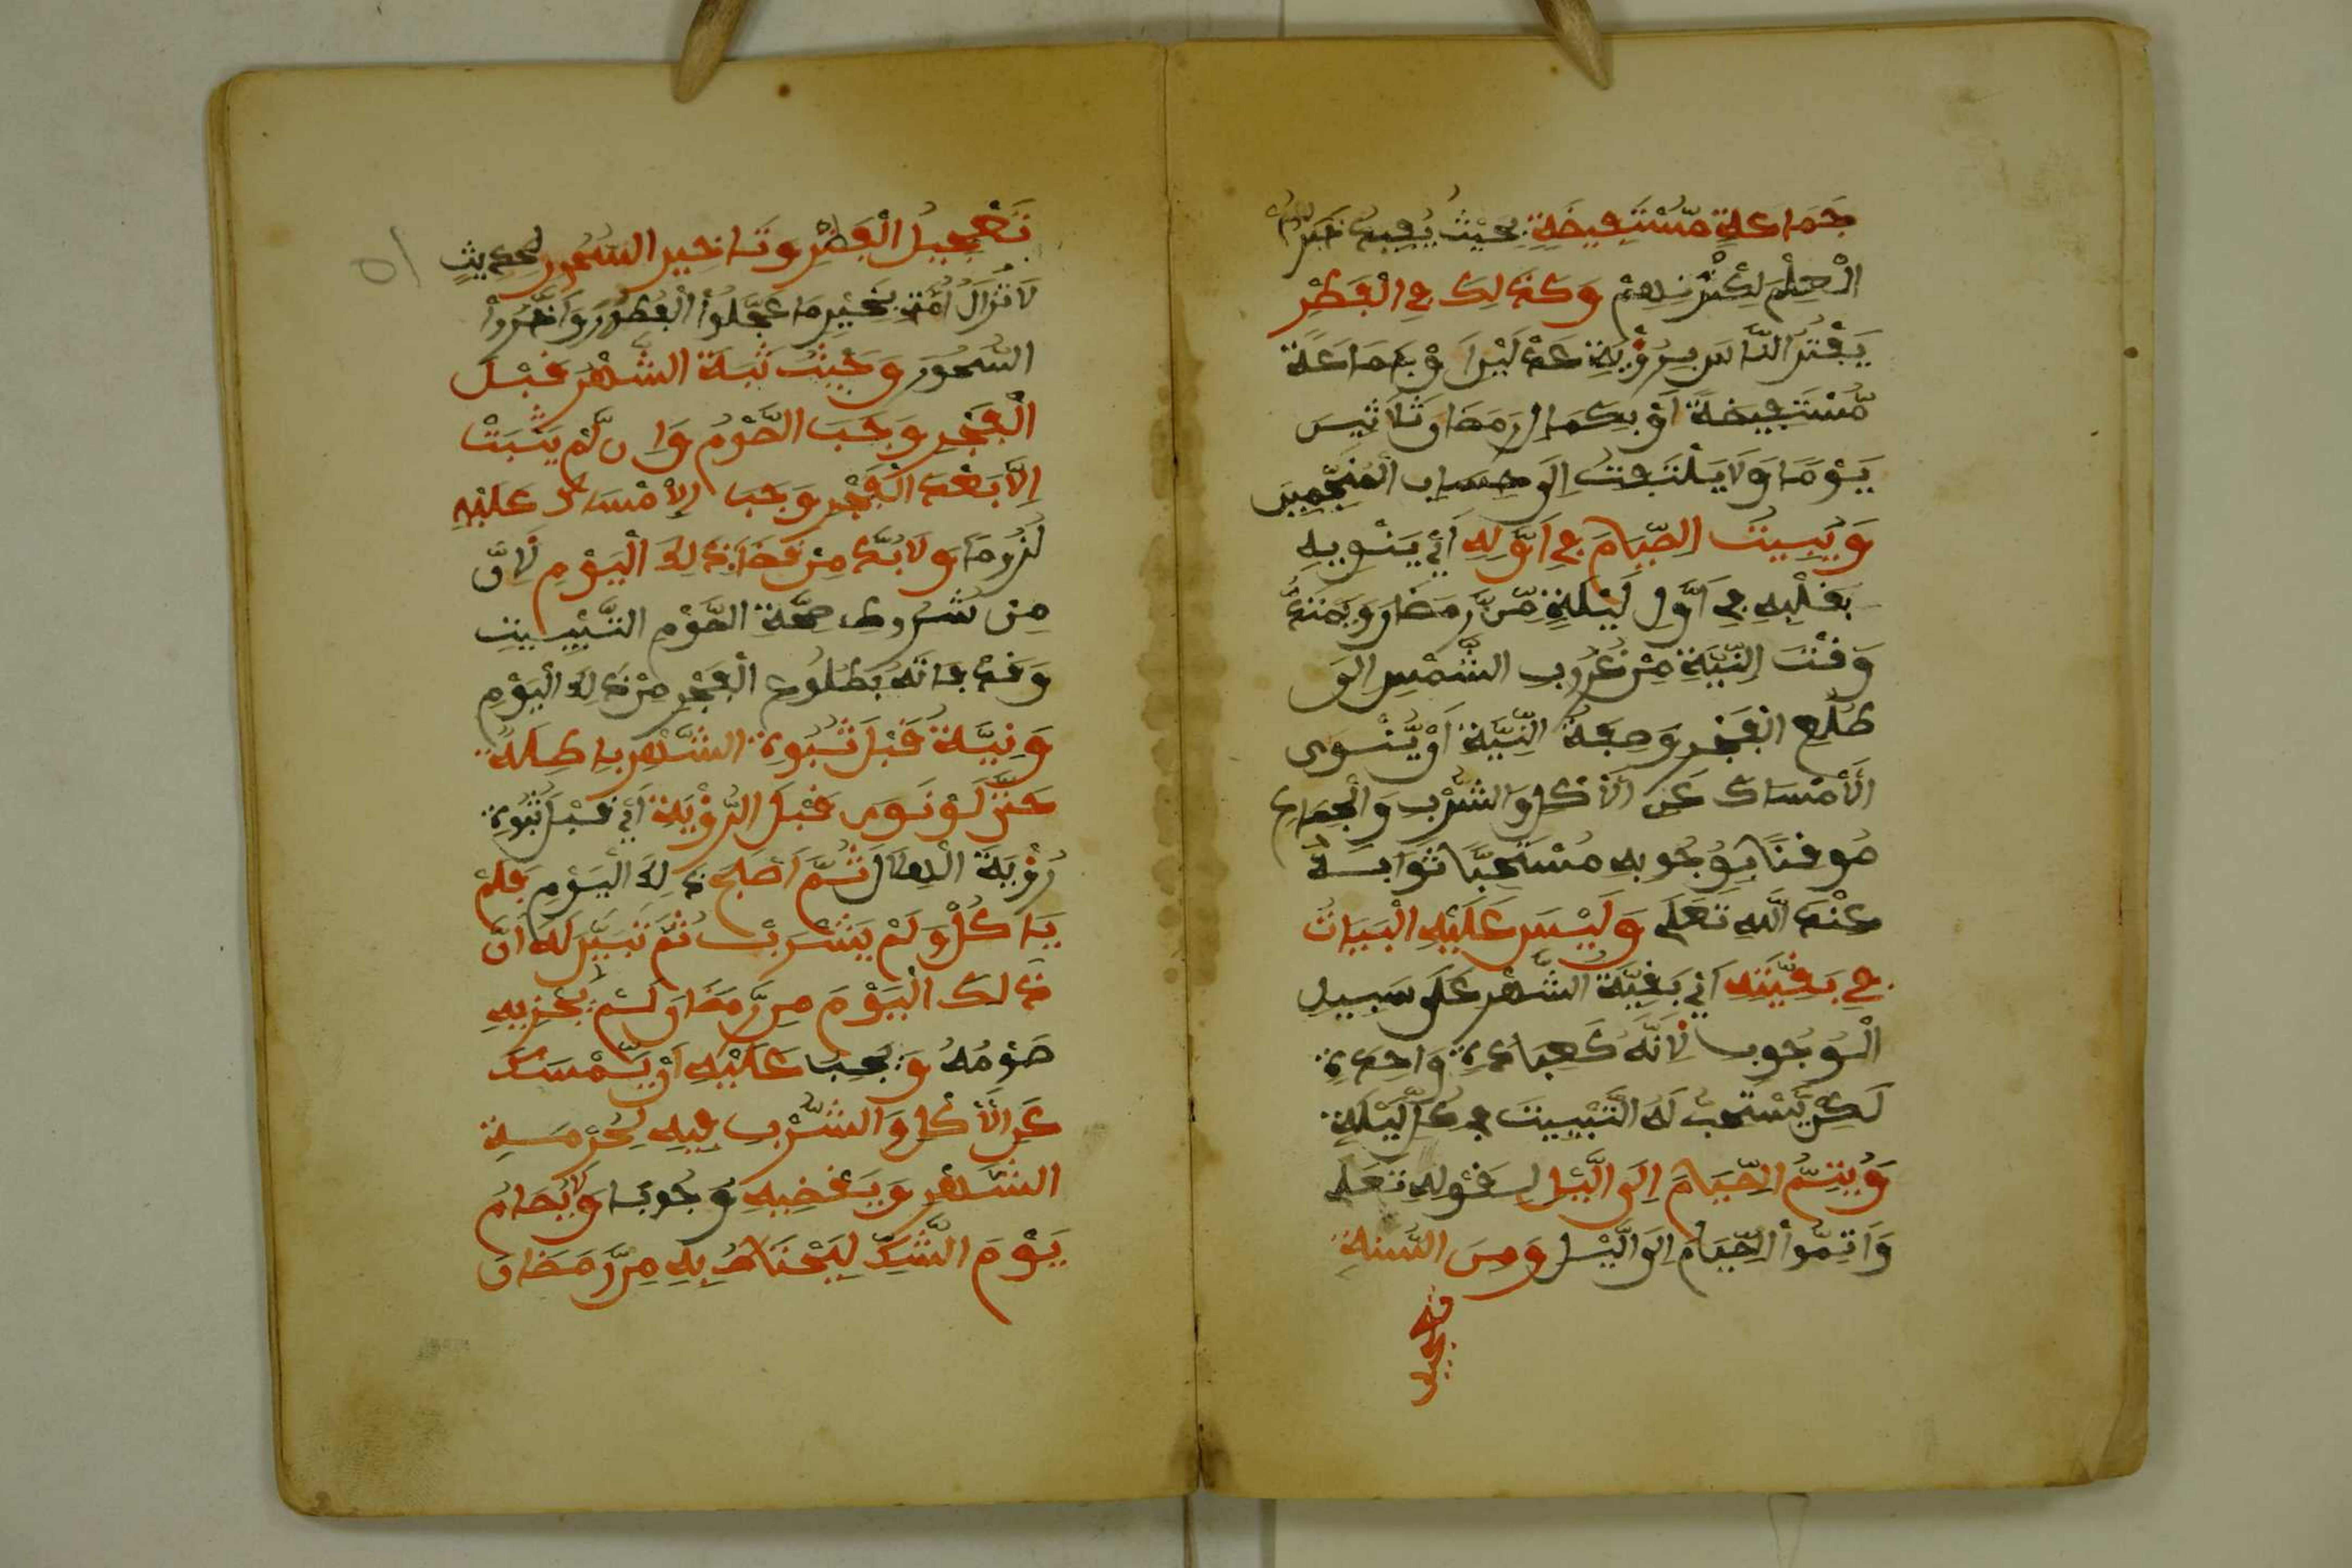 جَمَاعَةٍ مُّسْتَفِيضَةٍ بِحَيْثُ يُفِيدُ خَبَرُهُمُ
الْعِلْمَ لِكَثْرَتِهِمْ وَكَذَلِكَ فِي الْفِطْرِ
يَفْتُرُ النَّاسَ بِرُؤْيَةِ عَدْلَيْنِ اَوْ جَمَاعَةً
مُّسْتَفِيضَةً اَوْ بِكَمَالِ رَمَضَانَ ثَلَاثِينَ
يَوْمًا وَلَا يَلْتَفِتُ اِلَى حِسَابِ الْمُنَجِّمِينَ
وَيُبِيتُ الصِّيَامَ فِي اَوَّلِهِ اَيْ يَنْوِيهِ
بِقَلْبِهِ فِي اَوَّلِ لَيْلَةٍ مِّن رَّمَضَانَ وَيَمْتَدُّ
وَقْتَ النِّيَّةِ مِنْ غُرُوبِ الشَّمْسِ اِلَى
طُلُعِ الْفَجْرِ وَصِفَةُ النِّيَّةِ اَنْ يَّنْوِى
الْاِمْسَاكَ عَنِ الْاَكْلِ وَالشُّرْبِ وَالْجِمَاعِ
مُوقِنًا بِوُجُوبِهِ مُسْتَحِبًّا ثَوَابَهُ
عِنْدَ اللَّهِ تَعَلَى وَلَيْسَ عَلَيْهِ الْبَيَاتُ
فِي بَقِيَّتِهِ اَيْ بَقِيَّةَ الشَّهْرِ عَلَى سَبِيلِ
الْوُجُوبِ لِاَنَّهُ كَعِبَادَةٍ وَاحِدَةٍ
لَكِنْ يُّسْتَحِبُّ لَهُ التَّبْيِيتَ فِي كُلِّ لَيْلَةٍ
وَيُتِمُّ الصِّيَامَ اِلَى الَّيْلِ لِقَوْلِهِ تَعَلَى
وَاَتِمُّواْ الصِّيَامَ اِلَى الَّيْلِ وَمِنَ السُّنَةِ
تعجيل
تَعْجِيلُ الْفِطْرِ وَتَاخِيرِ السُّحُورِ لِحَدِيثٍ
لَا تَزَالُ اُمَّتِي بِخَيْرٍ مَا عَجَّلُواْ الْفُطُورَ وَاَخَّرُواْ
السُّحُورَ وَحَيْثُ ثَبَةَ الشَّهْرُ قَبْلَ
الْفَجْرِ وَجَبَ الصَّوْمُ وَاِن لَّمْ يَثْبَتْ
اِلَّا بَعْدَ الْفَجْرِ وَجَبَ الْاِمْسَاكُ عَلَيْهِ
لُزُومًا وَلَا بُدَّ مِنْ قَضَاءِ ذَلِكَ الْيَوْمِ لِاَنَّ
مِنْ شُرُوطِ صِحَّةِ الصَّوْمِ التَّبْيِيتِ
وَقَدْ فَاتَهُ بِطُلُوعِ الْفَجْرِ مِنْ ذَلِكَ الْيَوْمِ
وَنِيَّةُ قَبْلَ ثُبُوةِ الشَّهْرِ بَاطِلَةٌ
حَتَّى لَوْ نَوَى قَبْلَ الرُّؤْيَةِ اَيْ قَبْلَ ثُبُوةِ
رُؤْيَةَ الْهِلَالِ ثُمَّ اَصْبَحَ ذَلِكَ الْيَوْمِ فَلَمْ
يَاكُلْ وَلَمْ يَشْرَبْ ثُمَّ تَبَيَّنَ لَهُ اَنَّ
ذَلِكَ الْيَوْمَ مِن رَّمَضَانَ لَمْ يُجْزِيهِ
صَوْمُهُ وَيَجِبُ عَلَيْهِ اَنْ يَّمْسَكَ
عَنِ الْاَكْلِ وَالشُّرْبِ فِيهِ لِحُرْمَةِ
الشَّهْرِ وَيَقْضِيهِ وُجُوبًا وَلَا يُصَامُ
يَوْمَ الشَّكِّ لِيَحْتَاطُ بِهِ مِن رَّمَضَانَ